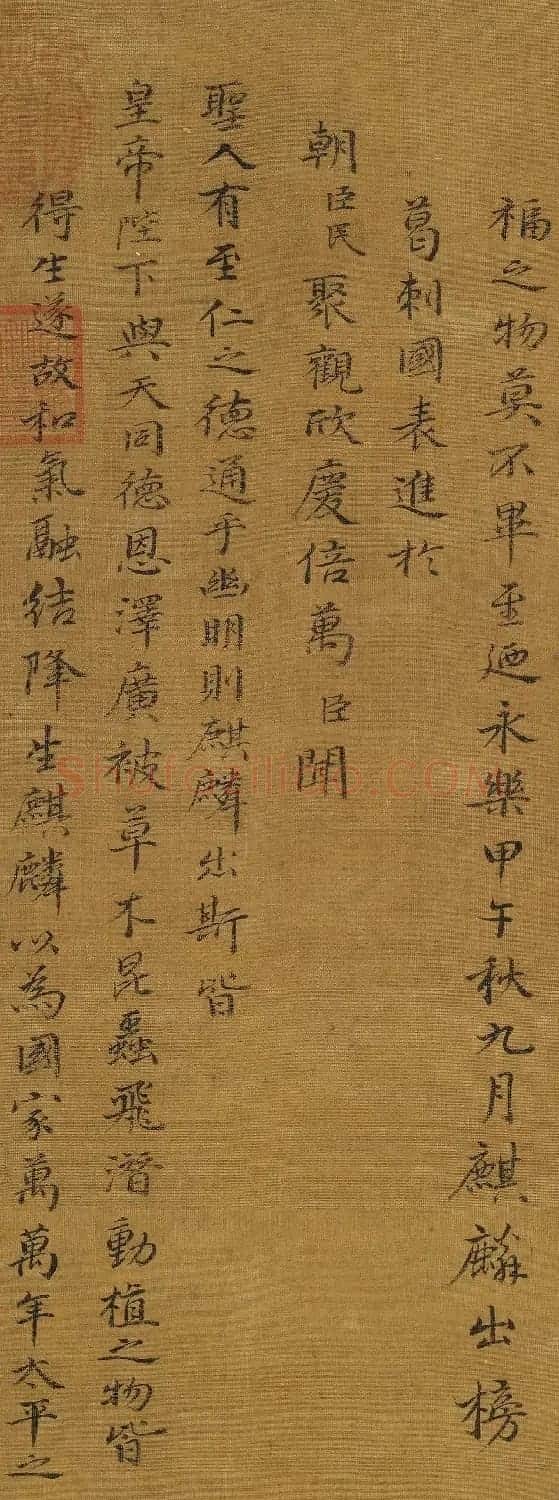 福之物莫不畢至迺永樂甲午秋九月麒麟出榜
葛剌國表進於
朝臣民聚觀欣慶倍萬臣聞
聖人有至仁之德通乎幽明則麒麟出斯皆
皇帝陛下與天同德恩澤廣被草木昆蟲飛潛動植之物皆
得生遂故和氣融結降生麒麟以為國家萬萬年太平之